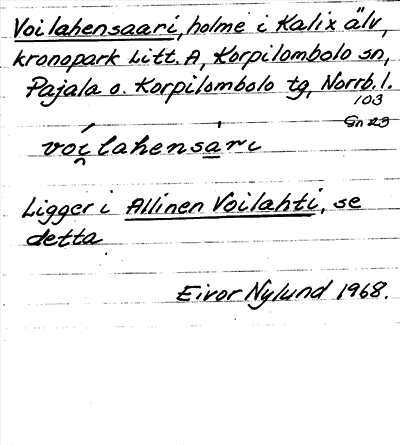 Voilahensaari, holme i Kalix älv,
kronopark Litt. A, Korpilombolo sn,
Pajala o. Korpilombolo tg, Norrb. l.
103
Gn 23
voi̯lahensa̱ri
Ligger i Allinen Voilahti, se
detta
Eivor Nylund 1968.